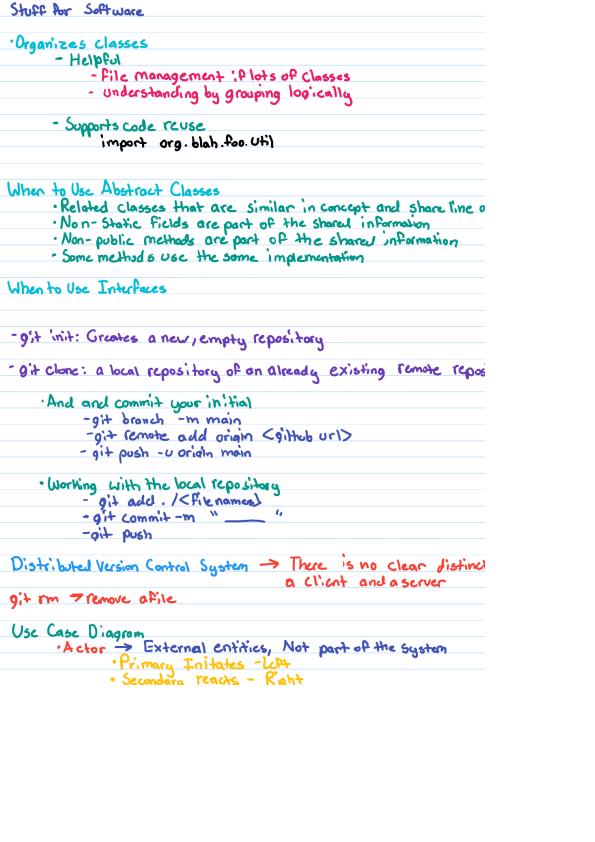 Stuff for Software
·Organizes classes
- Helpful
- File management if lots of classes
- understanding by grouping logically
- Supports code reuse
import org.blah.foo.util
When to Use Abstract Classes
·Related classes that are similar in concept and share line o
·Non-Static fields are part of the shared information
·Non-public methods are part of the shared information
·Some methods use the same implementation
When to Use Interfaces
-git init: Creates a new, empty repository
-git clone: a local repository of an already existing remote repos
·And and commit your initial
-git branch -m main
-git remote add origin <github url>
-git push -u origin main
·Working with the local repository
- git add . /<filenames>
-git commit -m "_____"
-git push
Distributed Version Control System → There is no clear distinct
a client and a server
git rm → remove a file
Use Case Diagram
·Actor → External entities, Not part of the system
·Primary Initates - Left
·Secondara reacts - Right